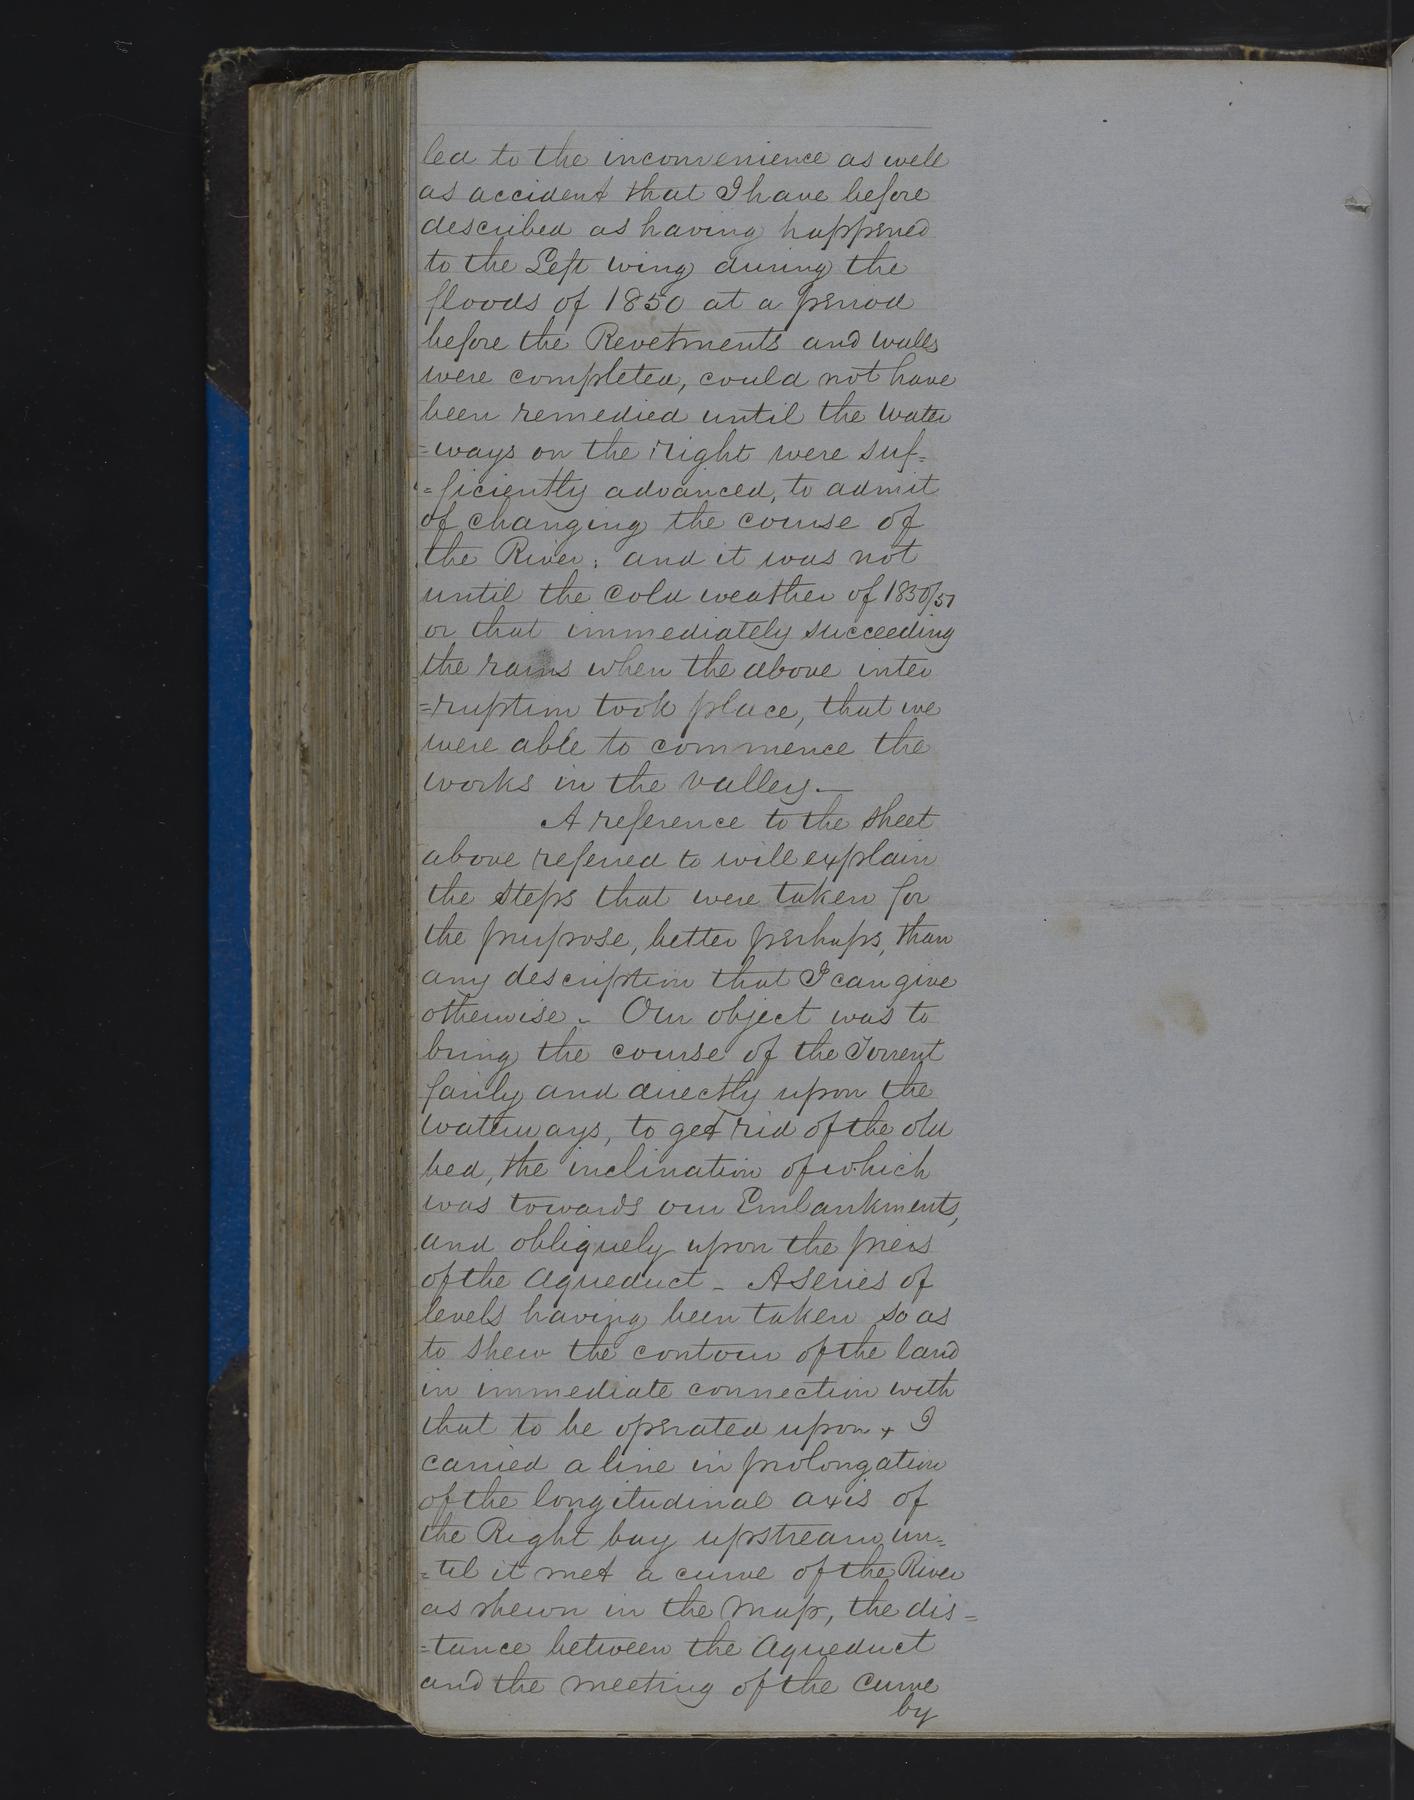 led to the inconvenience as well
as accident that I have before
described as having happened
to the Left wing during the
floods of 1850 at a period
before the Revetments and walls
were completed, could not have
been remedied until the water
=ways on the right were suf=
=ficiently advanced, to admit
of changing the course of
the River; and it was not
until the cold weather of 1850/51
or that immediately succeeding
the rains when the above inter
=ruption took place, that we
were able to commence the
works in the valley.—
A reference to the sheet
above referred to will explain
the steps that were taken for
the purpose, better perhaps, than
any description that I can give
otherwise - Our object was to
bring the course of the Torrent
fairly and directly upon the
waterways, to get rid of the old
bed, the inclination of which
was towards our Embankments,
and obliquely upon the piers
of the Aqueduct - A series of
levels having been taken so as
to shew the contour of the land
in immediate connection with
that to be operated upon + I
carried a line in prolongation
of the longitudinal axis of
the Right bay upstream un=
=til it met a curve of the River
as shewn in the Map, the dis=
=tance between the Aqueduct
and the meeting of the curve
by